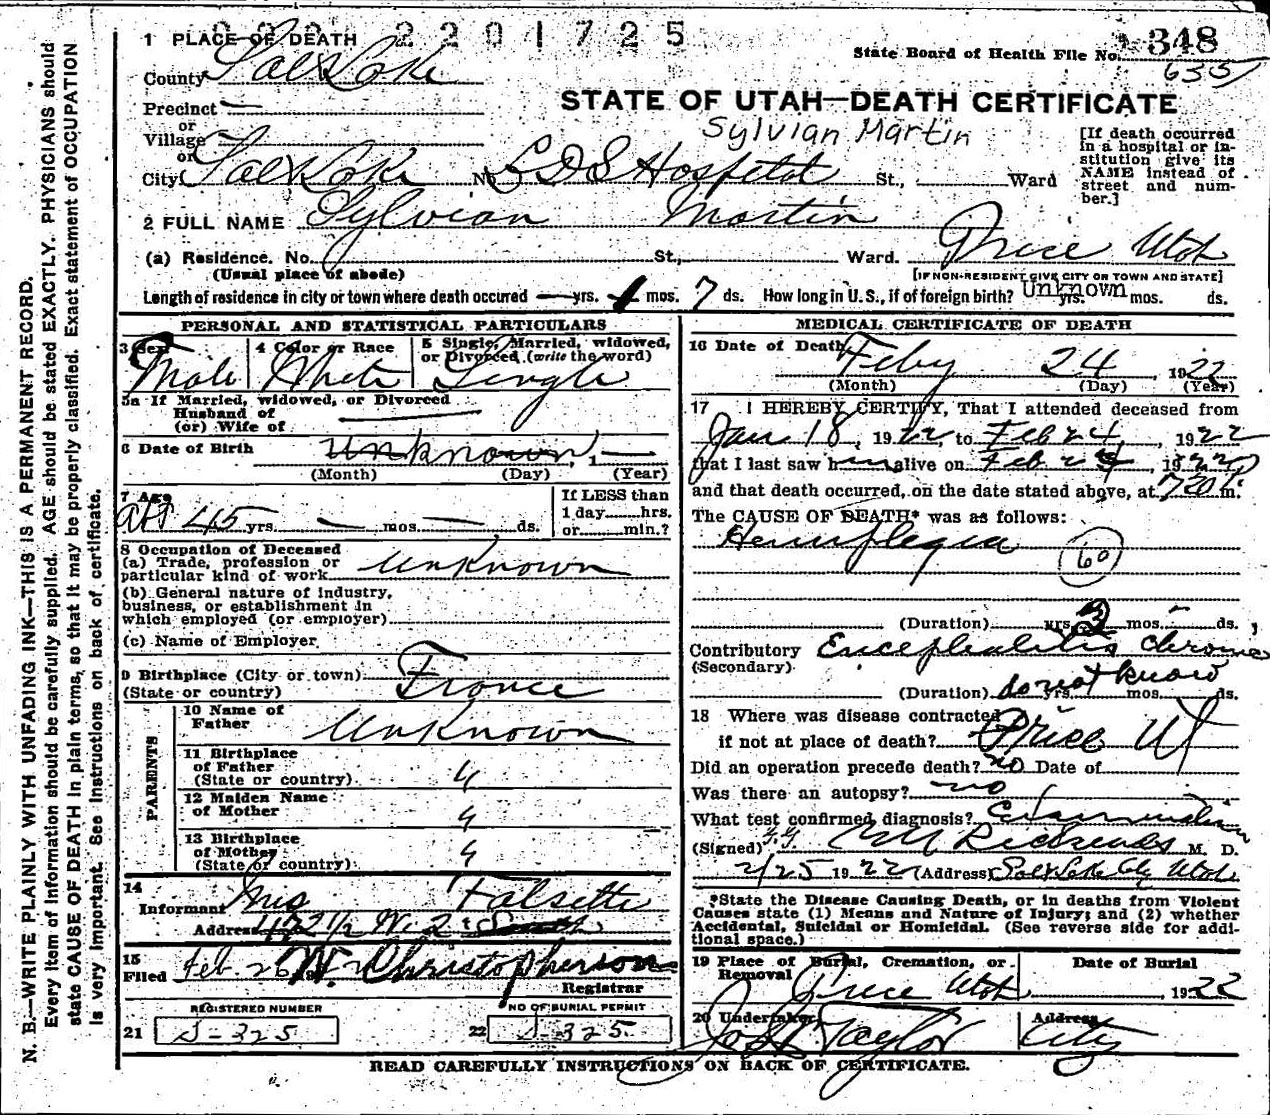 2201725
1 PLACE OF DEATH
State Board of Health File No. 348
635
County Salt Lake
STATE OF UTAH—DEATH CERTIFICATE
Precinct —
or
Village
or
Sylvian Martin
[If death occurred in a hospital or institution give its NAME instead of street and number.]
City Salt Lake No. LDS Hospital St., Ward
2 FULL NAME Sylvian Martin
(a) Residence. No. St., Ward. Price Utah
(Usual place of abode) [IF NON-RESIDENT GIVE CITY OR TOWN AND STATE]
Length of residence in city or town where death occurred — yrs. 1 mos. 7 ds. How long in U.S., if of foreign birth? Unknown yrs. mos. ds.
PERSONAL AND STATISTICAL PARTICULARS
3 Sex 4 Color or Race 5 Single, Married, widowed, or Divorced (write the word)
Male White Single
5a If Married, widowed, or Divorced
Husband of
(or) Wife of
6 Date of Birth Unknown, 1—
(Month) (Day) (Year)
7 Age
abt 45 yrs. — mos. — ds.
If LESS than
1 day hrs.
or min.?
8 Occupation of Deceased
(a) Trade, profession or
particular kind of work Unknown
(b) General nature of Industry,
business, or establishment in
which employed (or employer)
(c) Name of Employer
9 Birthplace (City or town)
(State or country) France
PARENTS
10 Name of
Father Unknown
11 Birthplace
of Father
(State or country) "
12 Maiden Name
of Mother "
13 Birthplace
of Mother
(State or country) "
14
Informant Mrs Falsette
Address 472 1/2 W. 2d South
15
Filed Feb. 26 W. Christopherson
Registrar
REGISTERED NUMBER NO OF BURIAL PERMIT
21 S-325 22 S-325
MEDICAL CERTIFICATE OF DEATH
16 Date of Death Feby 24 1922
(Month) (Day) (Year)
17 I HEREBY CERTIFY, That I attended deceased from
Jan 18, 1922 to Feb 24, 1922
that I last saw him alive on Feb 24, 1922
and that death occurred, on the date stated above, at 720 m.
The CAUSE OF DEATH* was as follows:
Hemiplegia
60
(Duration) yrs. 3 mos. — ds.,
Contributory Encephalitis Chronic
(Secondary)
(Duration) do not know yrs. mos. ds.
18 Where was disease contracted
if not at place of death? Price Ut
Did an operation precede death? no Date of
Was there an autopsy? no
What test confirmed diagnosis? Examination
(Signed) Richards M. D.
2/25 1922 (Address) Salt Lake City Utah
*State the Disease Causing Death, or in deaths from Violent
Causes state (1) Means and Nature of Injury; and (2) whether
Accidental, Suicidal or Homicidal. (See reverse side for addi-
tional space.)
19 Place of Burial, Cremation, or
Removal Price Utah
Date of Burial
1922
20 Undertaker Jos Taylor
Address City
READ CAREFULLY INSTRUCTIONS ON BACK OF CERTIFICATE.
N. B.—WRITE PLAINLY WITH UNFADING INK—THIS IS A PERMANENT RECORD.
Every item of information should be carefully supplied. AGE should be stated EXACTLY. PHYSICIANS should
state CAUSE OF DEATH in plain terms, so that it may be properly classified. Exact statement of OCCUPATION
is very important. See instructions on back of certificate.